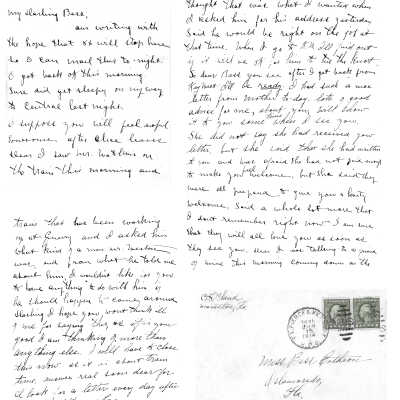 My Darling Bess,
am writing with
the hope that
so I can mail this to-night.
I got back ok this morning
Sure did get sleepy on my way
to Central last night.
I suppose you will feel awful
lonesome after Alice leaves
dear I saw Mr.
on the train this morning and
train that has been working
out at and I asked him
what kind of a man
was and from what he told me
about him, I wouldn't like for you
to have anything to do with him if
he should happen to come around
Darling I hope you wont think ill
of me for saying this, as it is your
good I am thinking of more than
anything else. I will have to close
this now as it is about train
time, answer real soon dear for
I look for a letter every day after
thought that was what I wanted when
I asked him for his address yesterday
Said he would be right on the job at
that time. When I go to
if it will be ok for him to tie the knot.
So dear Bess you see after I get back from
Key West I'll be ready I had such a nice
letter from mother to-day. Lots of good
advice for me, about you, will
to you some time when I see you.
She did not say she had received your
letter, but she said that she had written
to you and was afraid she had not said enough
to make you feel welcome, but she said they
were all prepared to give you a hearty
welcome. Said a whole lot more that
I don't remember right now I am sure
that they will all love you as soon as
they see you. Dear I was talking to a friend
of mine this morning coming down on the
Miss Bess
Fla.